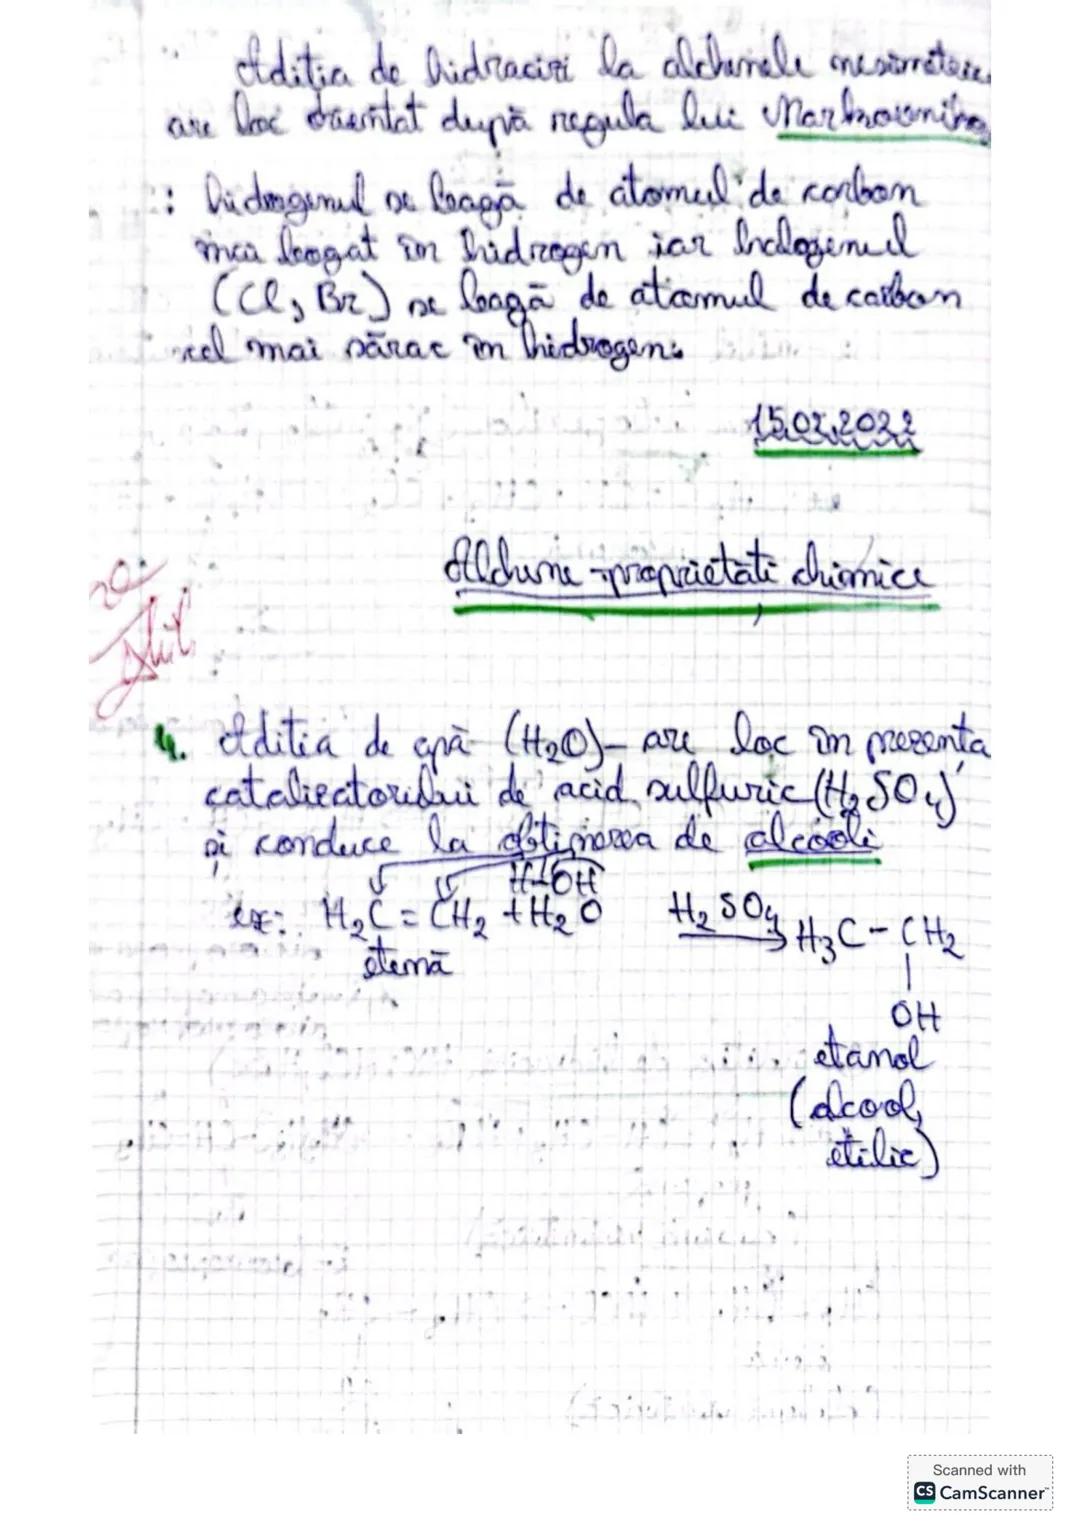 Adiția de hidracizi la alchenele nesimetrice
are loc orientat după regula lui Markovnikov
: hidrogenul se leagă de atomul de carbon
mai bogat în hidrogen iar halogenul
(Cl, Br) se leagă de atomul de carbon
cel mai sărac în hidrogen.
15.02.2022
Alchene - proprietăți chimice
4. Adiția de apă (H₂O) - are loc în prezența
catalizatorului de acid sulfuric (H₂SO₄)
și conduce la obținerea de alcooli
H-OH
ex: H₂C = CH₂ + H₂O H₂SO₄ → H₃C - CH₂
etenă
|
OH
etanol
(alcool
etilic)
Scanned with
CS CamScanner